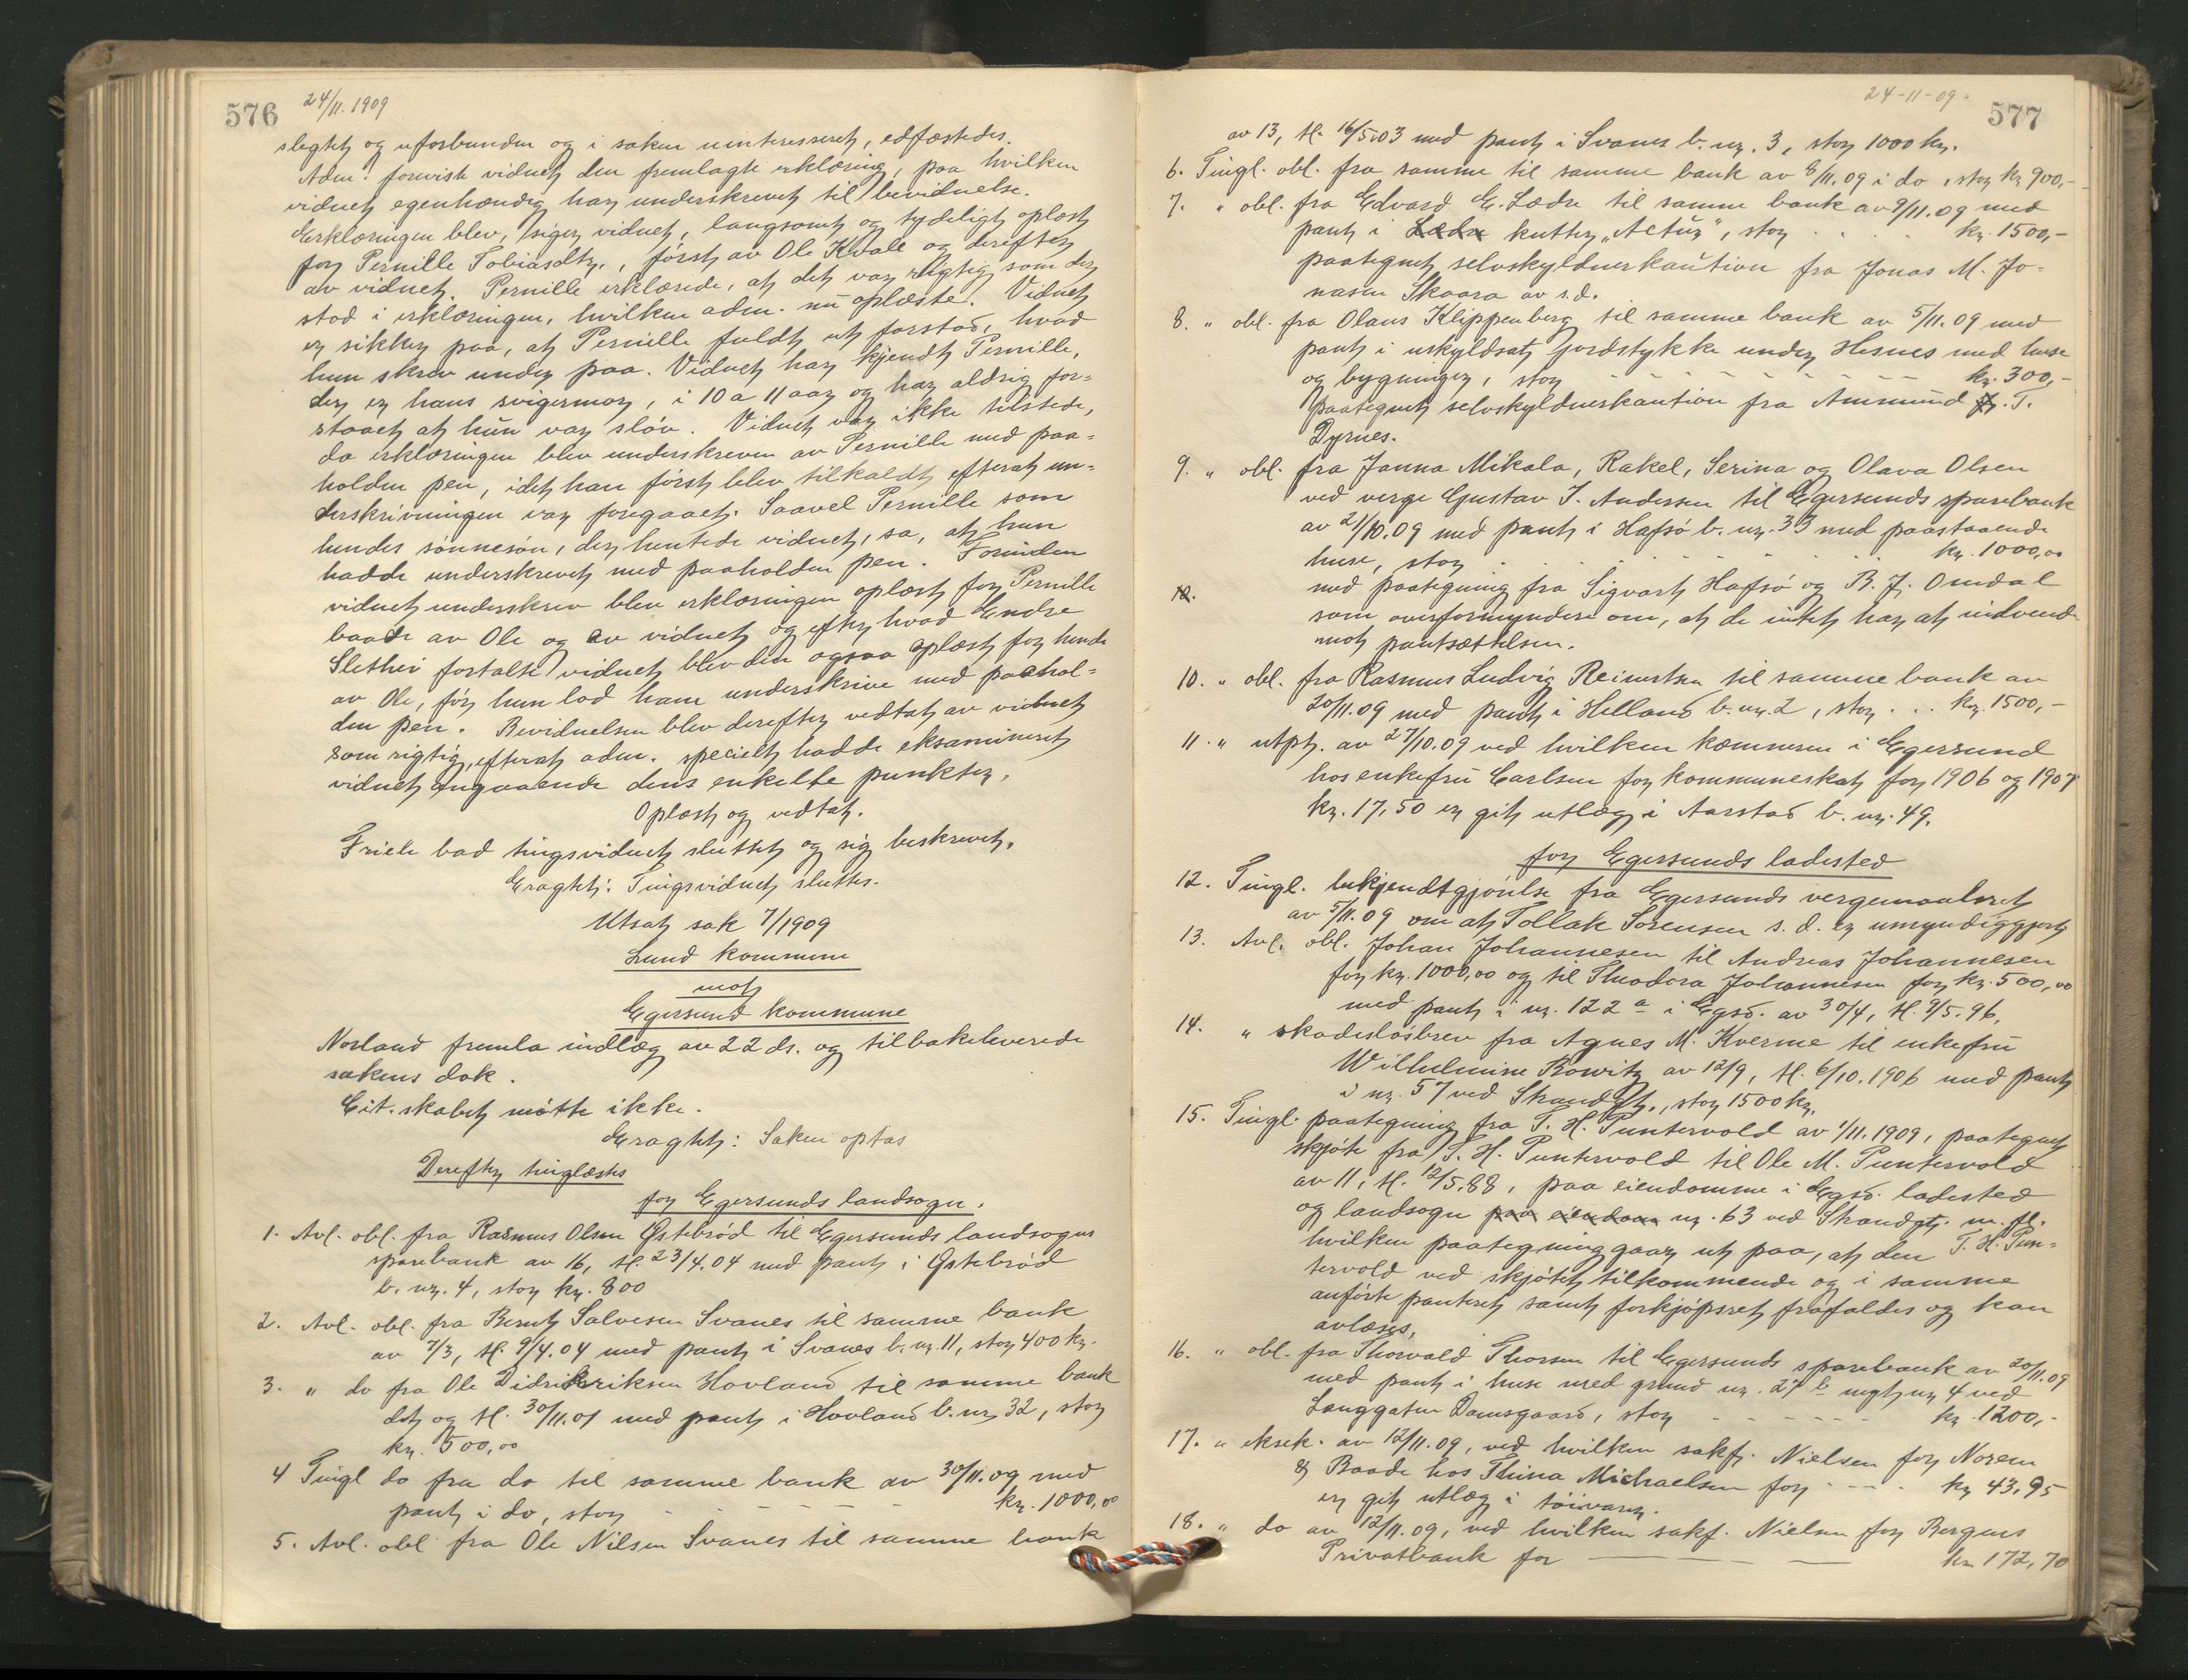 576
24/11.1909
slegtet og uforbunden og i saken uinteresseret, edfæstedes.
Adm. foreviste vidnet den fremlagte erklæring, paa hvilken
vidnet egenhændig har underskrevet til bevidnelse.
Erklæringen blev, siger vidnet, langsomt og tydeligt oplæst
for Pernille Tobiasdtr., først av Ole Kvale og derefter
av vidnet. Pernille erklærede, at det var rigtig som der
stod i erklæringen, hvilken adm. nu oplæste. Vidnet
er sikker paa, at Pernille fuldt ut forstod, hvad
hun skrev under paa. Vidnet har kjendt Pernille,
der er hans svigermor, i 10 a 11 aar og har aldrig for-
staaet at hun var sløv. Vidnet var ikke tilstede,
da erklæringen blev underskreven av Pernille med paa-
holden pen, idet han først blev tilkaldt efterat un-
derskrivningen var foregaaet. Saavel Pernille som
hendes sønnesøn, der hentede vidnet, sa, at hun
hadde underskrevet med paaholden pen. Forinden
vidnet underskrev blev erklæringen oplæst for Pernille
baade av Ole og av vidnet og efter hvad Endre
Slethei fortalte vidnet blev den ogsaa oplæst for hende
av Ole, før hun lod ham underskrive med paahol-
den pen. Bevidnelsen blev derefter vedtat av vidnet
som rigtig, efterat adm. specielt hadde eksamineret
vidnet angaaende dens enkelte punkter.
Oplæst og vedtat.
Friele bad tingsvidnet sluttet og sig beskrevet.
Eragtet: Tingsvidnet sluttes.
Utsat sak 7/1909
Lund kommune
mot
Egersund kommune
Norland fremla indlæg av 22 ds. og tilbakeleverede
sakens dok.
Cit. skabet møtte ikke.
Eragtet: Saken optas
Derefter tinglæstes
for Egersunds landsogn.
1. Avl. obl. fra Rasmus Olsen Østebrød til Egersunds landsogns
sparebank av 16, tl. 23/4.04 med pant i Østebrød
b. nr. 4, stor kr. 800
2. Avl. obl. fra Bernt Salvesen Svanes til samme bank
av 7/3, tl. 9/4.04 med pant i Svanes b. nr. 11, stor 400 kr.
3. " do fra Ole Didriksen Hovland til samme bank
dat og tl. 30/11.01 med pant i Hovland b. nr 32, stor
kr. 500,00
4 Tingl do fra do til samme bank av 30/11.09 med
pant i do, stor - - - - - kr. 1000,00
5. Avl. obl. fra Ole Nilsen Svanes til samme bank
24-11-09.
577
av 13, tl. 16/5.03 med pant i Svanes b. nr. 3, stor 1000 kr.
6. Tingl. obl. fra samme til samme bank av 8/11.09 i do, stor kr 900,-
7. " obl. fra Edvard E. Lædre til samme bank av 9/11.09 med
pant i Lædre kutter "Actur", stor . . . . kr. 1500,-
paategnet selvskyldnerkaution fra Jonas M. Jo-
nasen Skaara av s.d.
8. " obl. fra Olaus Klippenberg til samme bank av 5/11.09 med
pant i uskyldsat jordstykke under Hesnes med huse
og bygninger, stor - - - - - - kr. 300,-
paategnet selvskyldnerkaution fra Ammund . T.
Dyrnes.
9. " obl. fra Janna Mikala, Rakel, Serina og Olava Olsen
ved verge Gustav I. Andersen til Egersunds sparebank
av 21/10.09 med pant i Hafsø b. nr. 33 med paastaaende
huse, stor . . . . . . . kr. 1000,00
10. med paategning fra Sigvart Hafsø og B. J. Omdal
som overformyndere om, at de intet har at indvende
mot pantsættelsen.
10. " obl. fra Rasmus Ludvig Reinertsen til samme bank av
20/11.09 med pant i Helland b. nr. 2, stor . . . kr. 1500,-
11. " utpt. av 27/10.09 ved hvilken kæmneren i Egersund
hos enkefru Carlsen for kommuneskat for 1906 og 1907
kr. 17,50 er git utlæg i Aarstad b. nr. 49.
for Egersunds ladested
12. Tingl. bekjendtgjørelse fra Egersunds vergemaalsret
av 5/11.09 om at Tollak Sørensen s. d. er umyndiggjort
13. Avl. obl. Johan Johannesen til Andreas Johannesen
for kr. 1000,00 og til Theodora Johannesen for kr. 500,00
med pant i nr. 122 a i Egsd. av 30/4, tl. 9/5.96.
14. " skadesløsbrev fra Agnes M. Kverme til enkefru
Wilhelmine Rowitz av 12/9, tl. 6/10.1906 med pant
i nr. 57 ved Strandgt., stor 1500 kr.
15. Tingl. paategning fra T. H. Puntervold av 1/11.1909, paategnet
skjøte fra T. H. Puntervold til Ole M. Puntervold
av 11, tl. 12/5.88, paa eiendomme i Egsd. ladested
og landsogn paa eiendom nr. 63 ved Strandgt. m. fl.
hvilken paategning gaar ut paa, at den T. H. Pun-
tervold ved skjøtet tilkommende og i samme
anførte panteret samt forkjøpsret frafaldes og kan
avlæses.
16. " obl. fra Thorvald Thorsen til Egersunds sparebank av 20/11.09
med pant i huse med grund nr. 27 b nyt nr 4 ved
Langgaten Damsgaard, stor - - - - - - kr. 1200,-
17. " eksek. av 12/11.09, ved hvilken sakf. Nielsen for Noreen
& Baade hos Thina Michaelsen for - - - . kr 43,95
er git utlæg i tøivarer.
18. " do av 12/11.09, ved hvilken sakf. Nielsen for Bergens
Privatbank for — — — kr 172,70